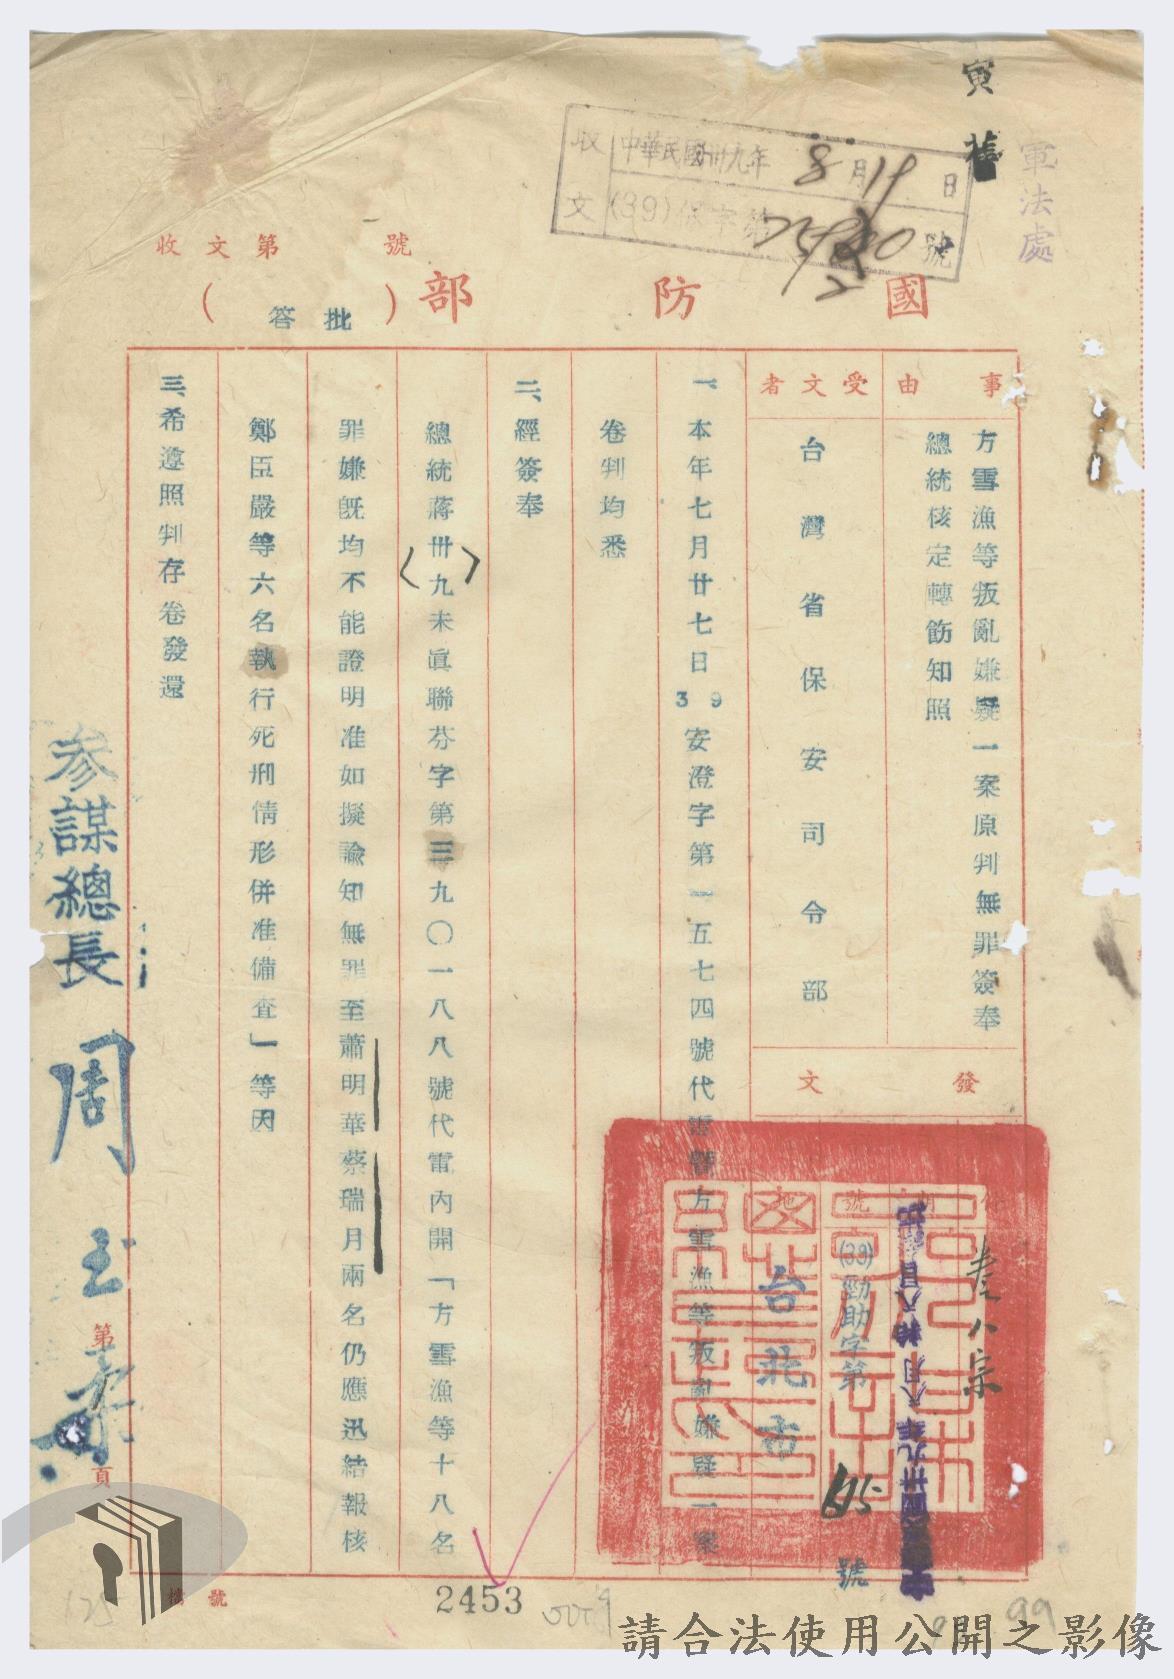 寅
軍法處
收文
中華民國卅九年8月19日
(39)保字第 號
收文第 號
國防部(批答)
事由
方雪漁等叛亂嫌疑一案原判無罪簽奉
總統核定轉飭知照
受文者
台灣省保安司令部
發文
附
叁八宗
中華民國卅九年八月拾八日
號
(39)勁助字第615號
地
台北市
一、本年七月廿七日39安澄字第一五七四號代電暨方雪漁等叛亂嫌疑一案
卷判均悉
二、經簽奉
總統蔣〈卅九〉未真聯芬字第三九〇一八八號代電內開「方雪漁等十八名
罪嫌既均不能證明准如擬諭知無罪至蕭明華蔡瑞月兩名仍應迅結報核
鄭臣嚴等六名執行死刑情形併准備查」等因
三、希遵照判存卷發還
參謀總長 周至柔
第 頁
檔 號
2453
125
99
請合法使用公開之影像